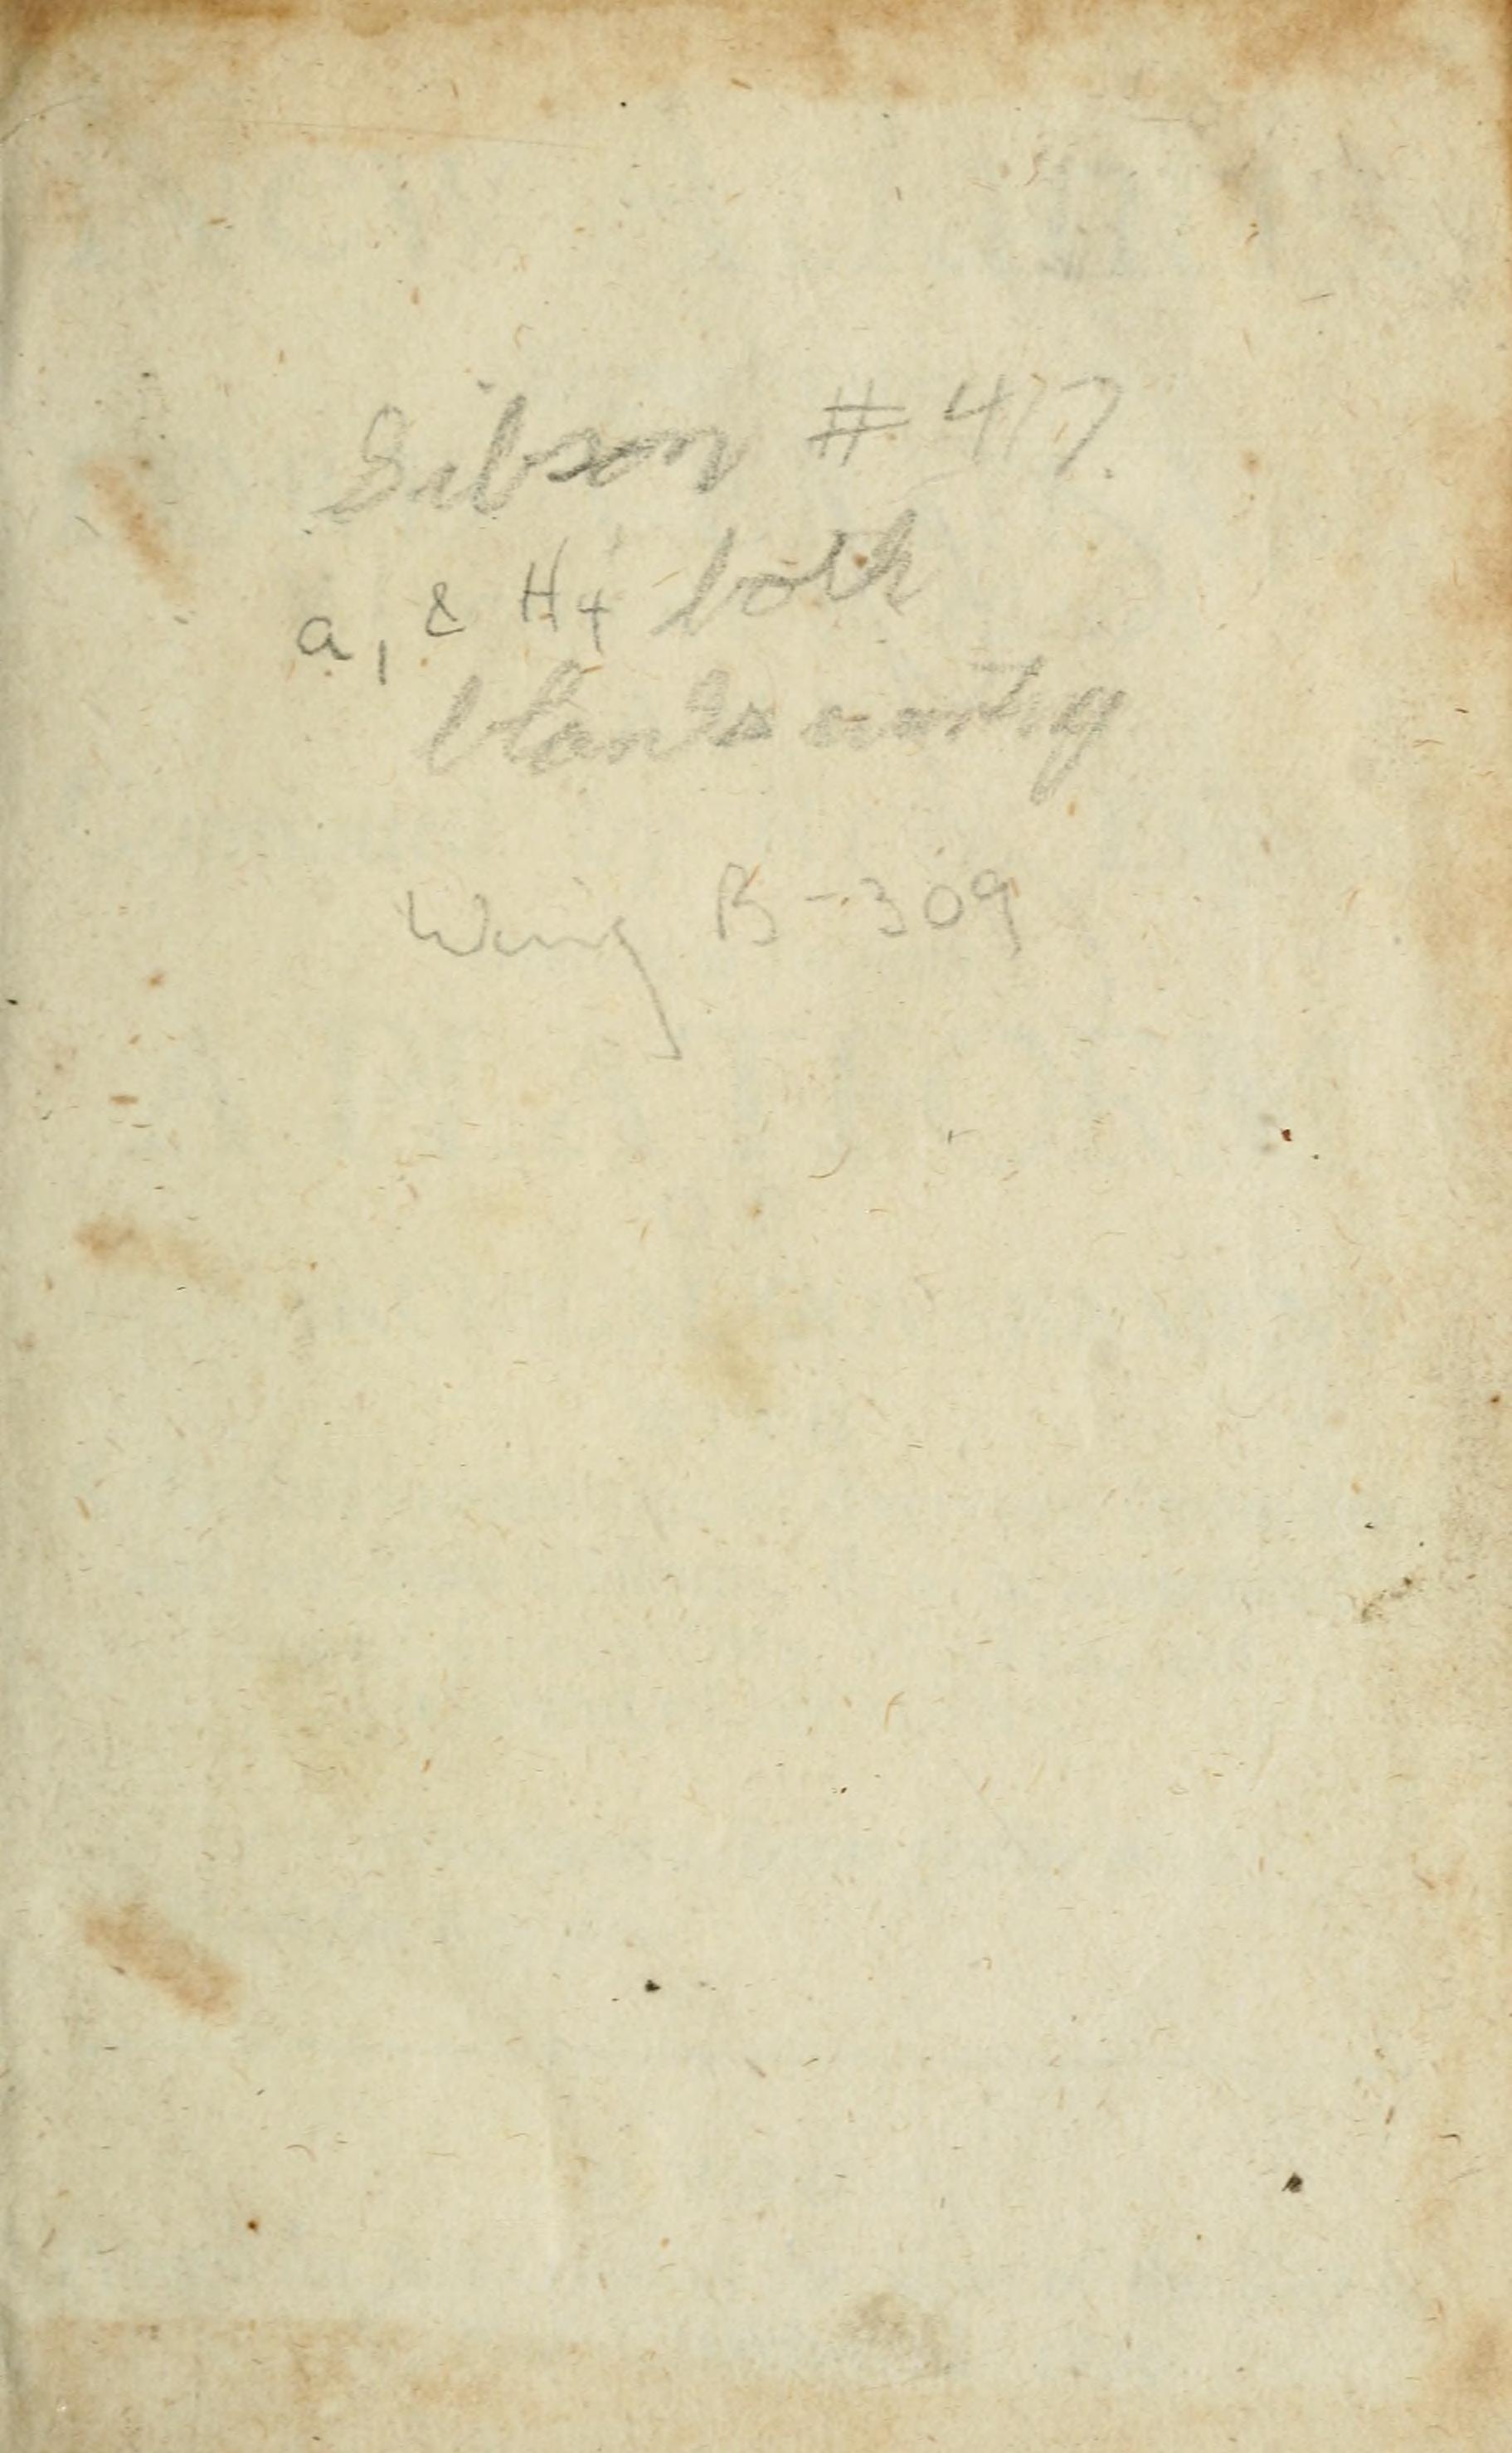 Gibson # 417.
a1 & H4 both
blanks wanting
Wing B-309